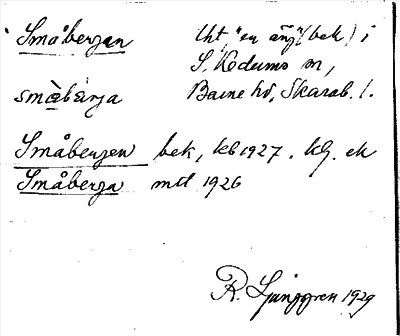 Småbergen Uht, "en äng" (bek) i
S. Kedums sn,
småbärja Barne hd, Skarab. l.
Småbergen bek, kb 1927. kg. ek
Småberga mtl 1926
R. Ljunggren 1929